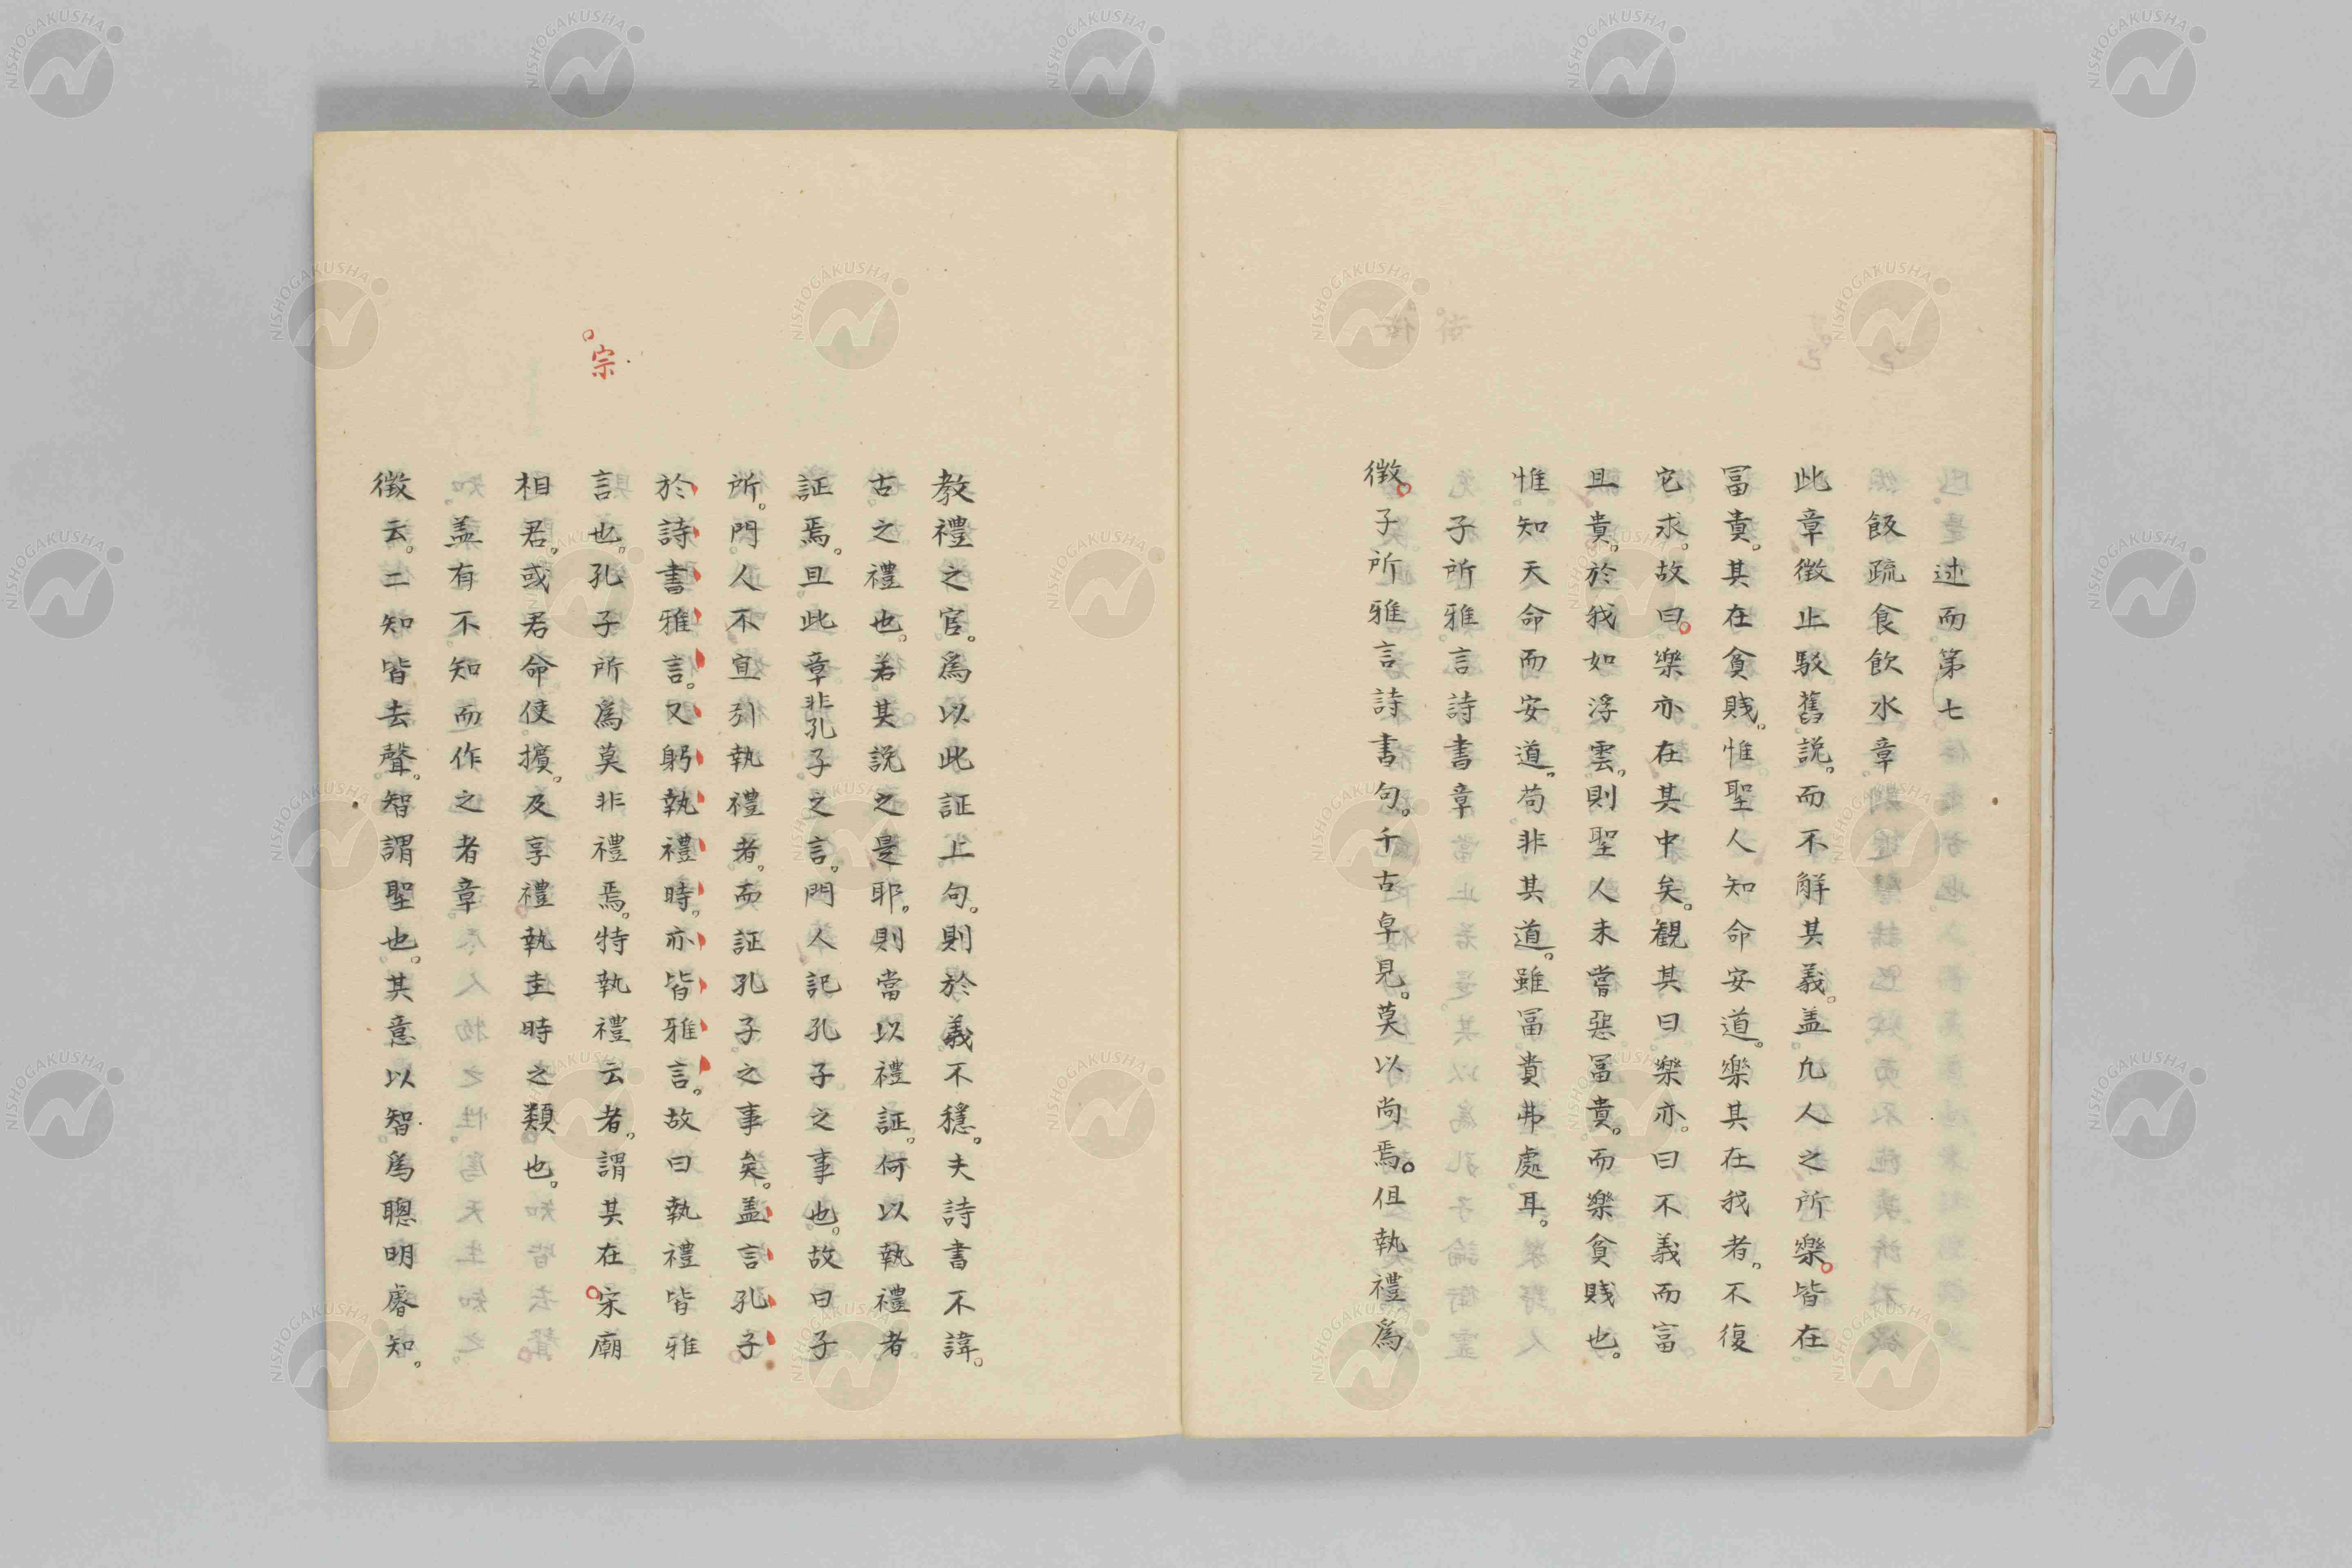 述而第七
飯疏食飲水章
此章徵止駁舊説。而不解其義。盖凢人之所樂。皆在
冨貴。其在貧賤。惟聖人知命安道。樂其在我者。不復
它求。故曰。樂亦在其中矣。観其曰樂亦。曰不義而富
且貴。於我如浮雲。則聖人未嘗惡冨貴。而樂貧賤也。
惟知天命而安道。苟非其道。雖冨貴弗處耳。
子所雅言詩書章
徵。子所雅言詩書句。千古卓見。莫以尚焉。但執禮爲
教禮之官。爲以此証上句。則於義不穏。夫詩書不諱。
古之禮也。若其説之是耶。則當以禮証。何以執禮者
証焉。且此章非孔子之言。門人記孔子之事也。故曰子
所。門人不宜引執禮者。而証孔子之事矣。盖言孔子
於詩書雅言。又躬執禮時。亦皆雅言。故曰執禮皆雅
言也。孔子所爲莫非禮焉。特執禮云者。謂其在宋廟
宗
相君。或君命使擯。及享禮執圭時之類也。
盖有不知而作之者章
徴云。二知皆去聲。智謂聖也。其意以智爲聰明睿知。
NISHOGAKUSHA
NISHOGAKUSHA
NISHOGAKUSHA
NISHOGAKUSHA
NISHOGAKUSHA